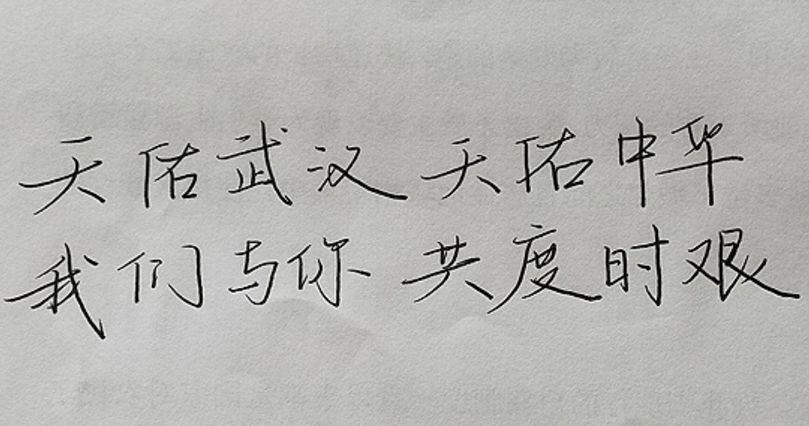 天佑武汉 天佑中华
我们与你 共度时艰